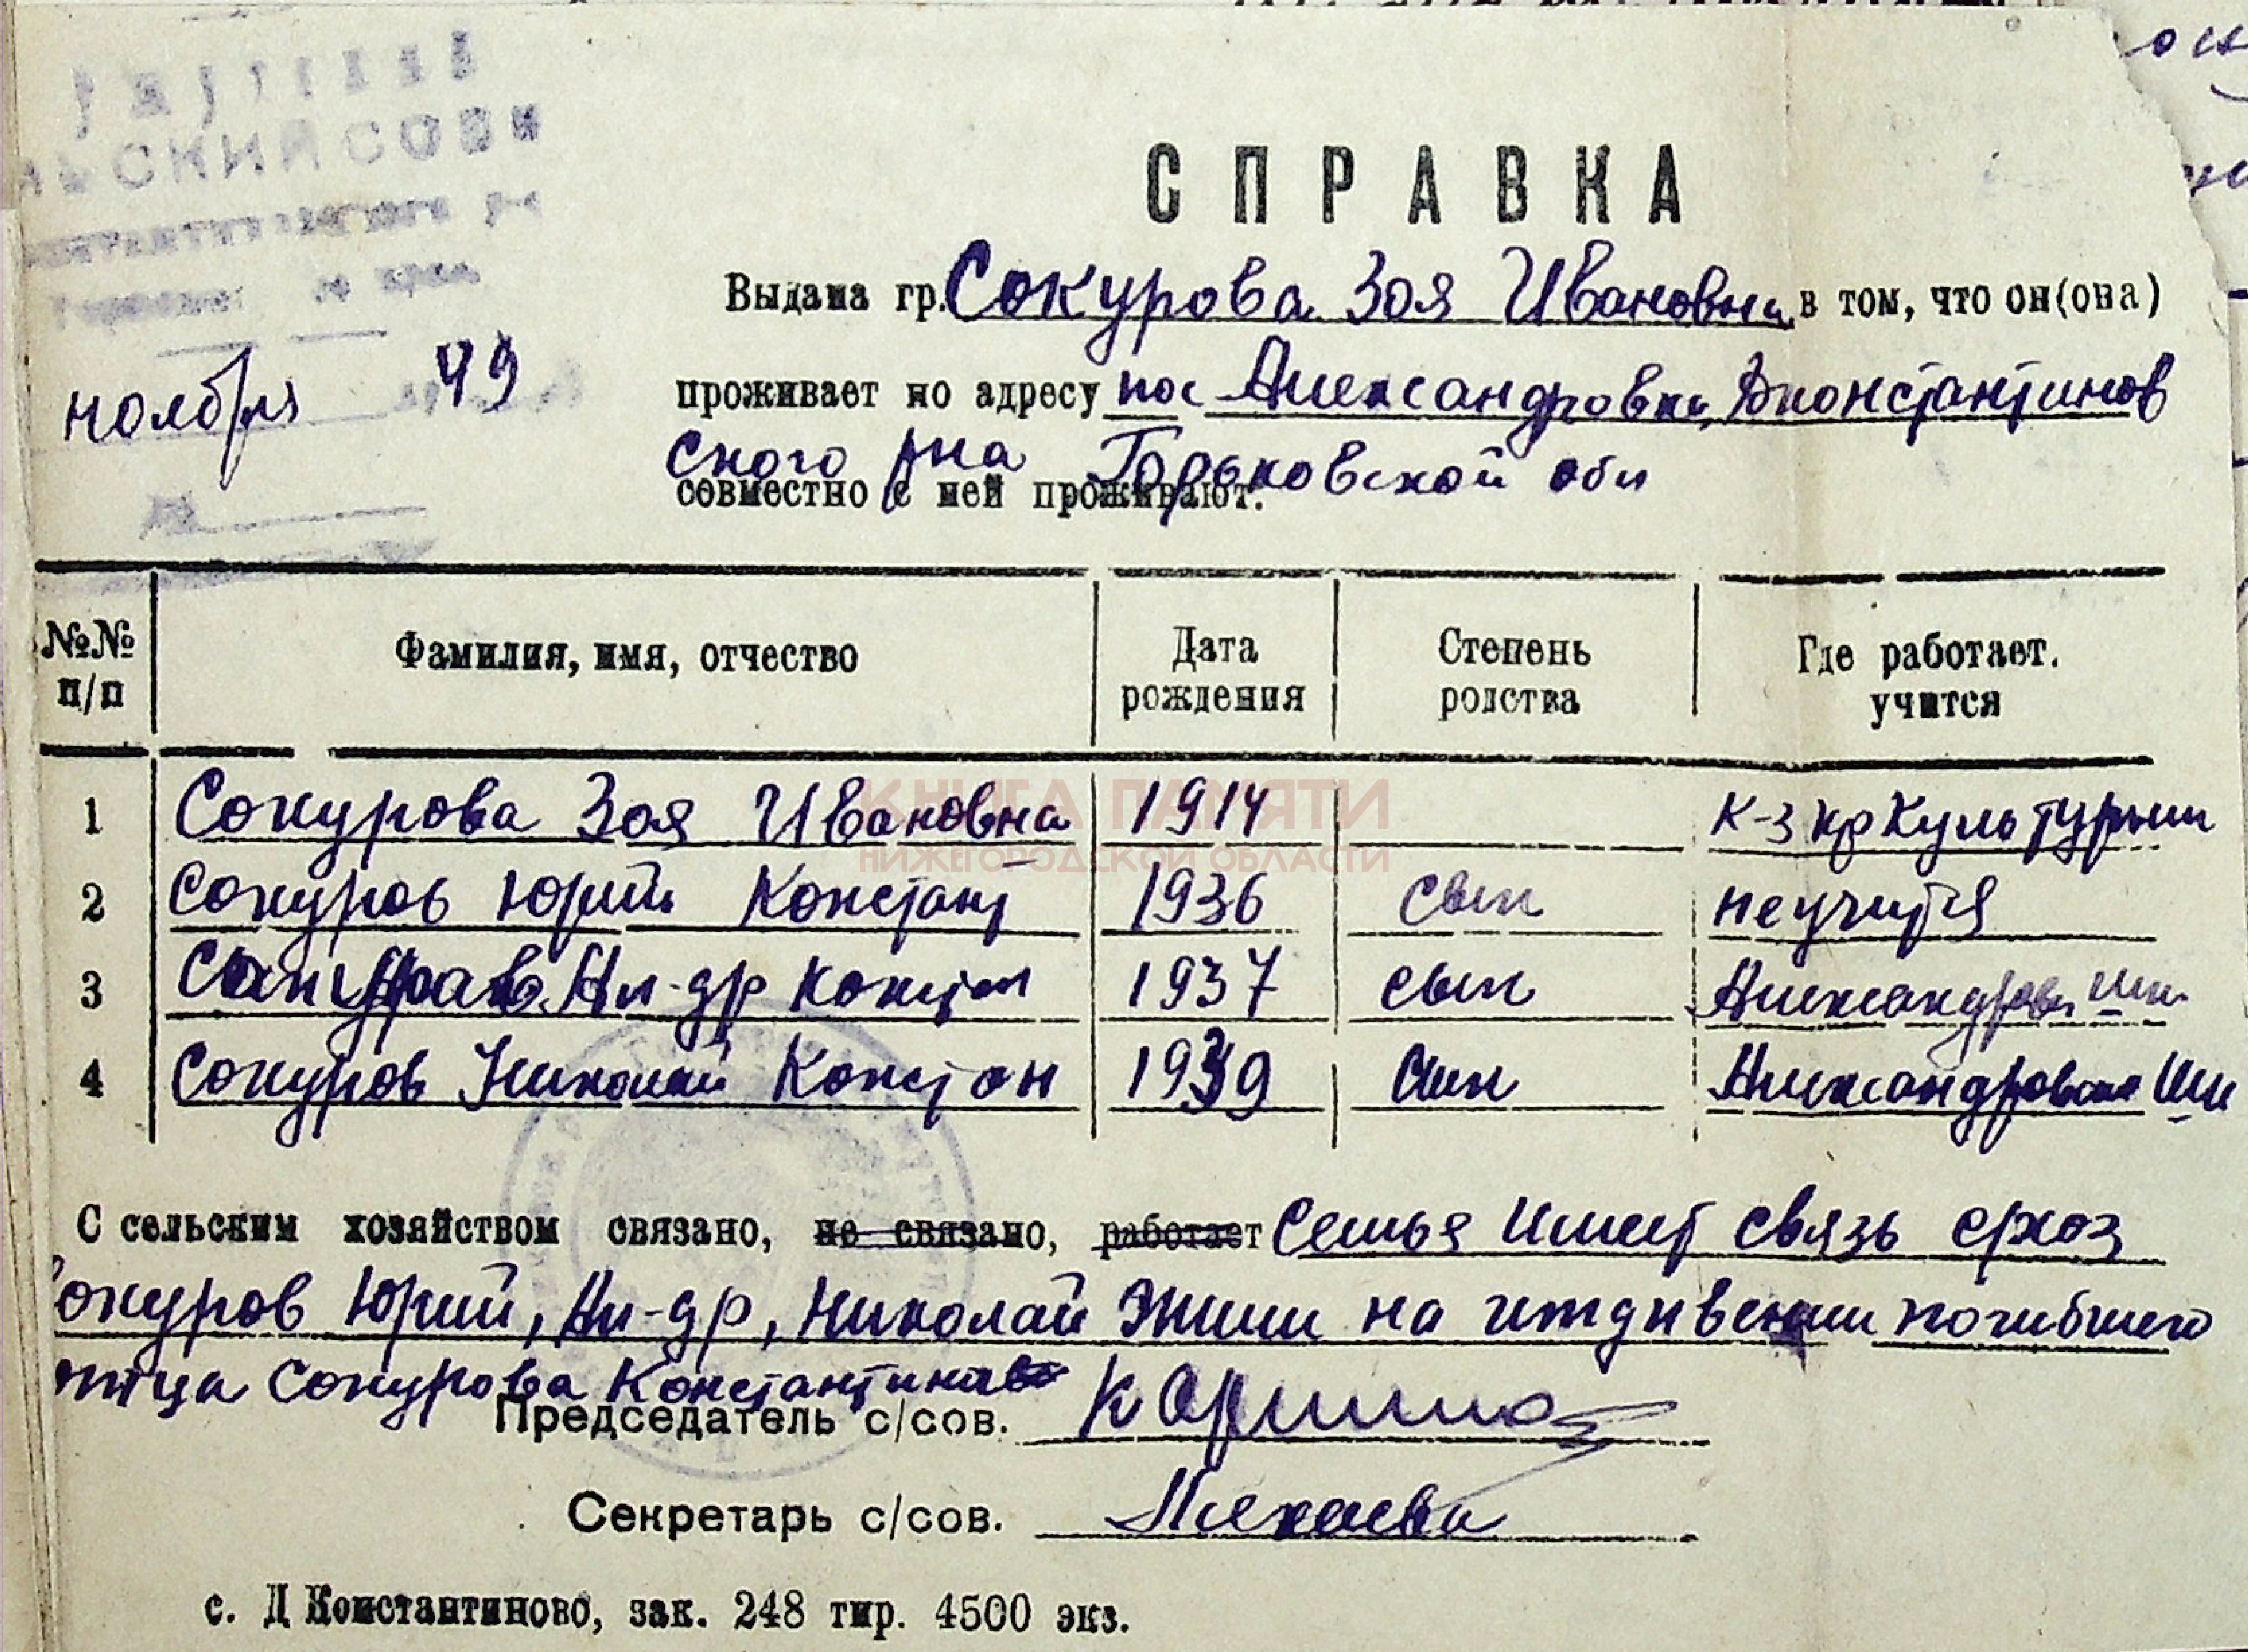 ЬСКИЙ СОВЕ
СПРАВКА
Выдана гр. Сокурова Зоя Ивановна в том, что он(она)
ноября 49
проживает по адресу пос Александровка, Дконстантинов
ского рна Горьковской обл
совместно с ней проживают:
№№ п/п Фамилия, имя, отчество Дата рождения Степень родства Где работает. учится
КНИГА ПАМЯТИ
НИЖЕГОРОДСКОЙ ОБЛАСТИ
1 Сокурова Зоя Ивановна 1914 к-з кр Культурник
2 Сокуров Юрий Констант 1936 сын не учится
3 Сокуров Ал-др Констан 1937 сын Александров шк
4 Сокуров Николай Констан 1939 сын Александровская шк
С сельским хозяйством связано, не связано, работает Семья имеет связь схоз
окуров Юрий, Ал-др, Николай Жили на иждивении погибшего
отца Сокурова Константина
Председатель с/сов.
Секретарь с/сов.
с. Д Константиново, зак. 248 тир. 4500 экз.